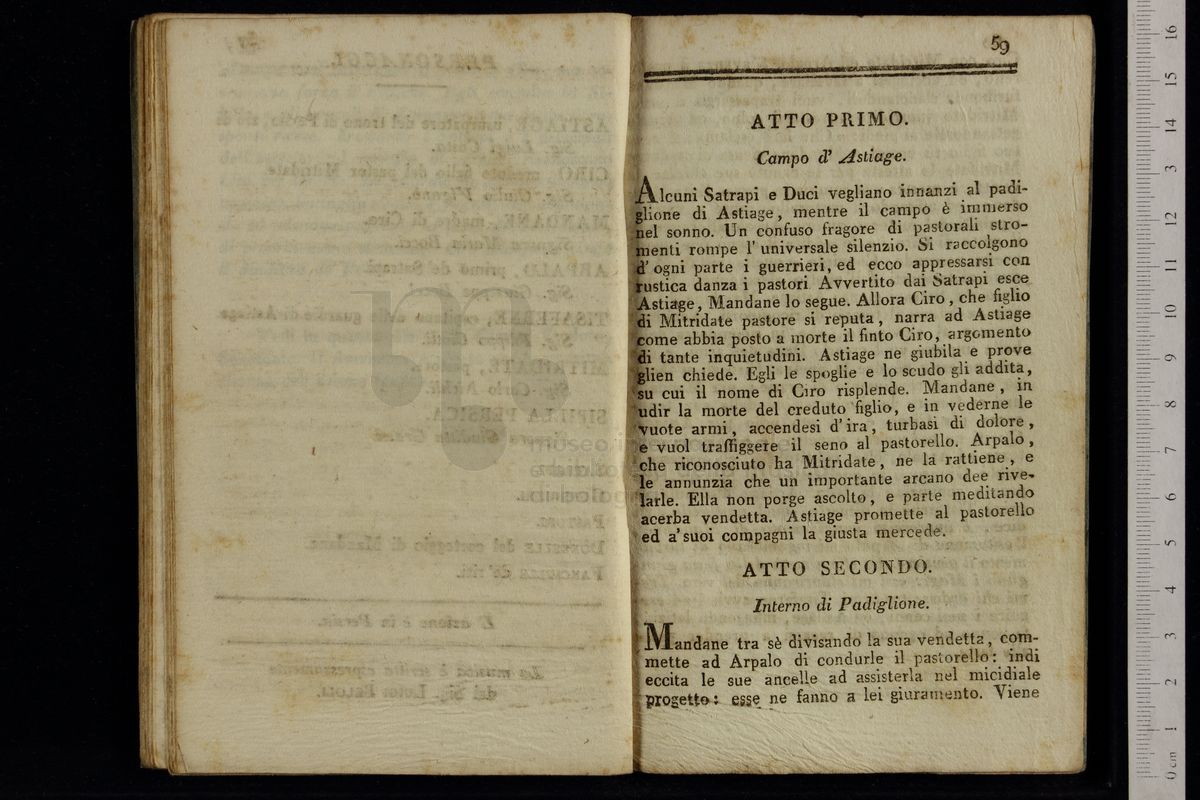 59
ATTO PRIMO.
Campo d' Astiage.
Alcuni Satrapi e Duci vegliano innanzi al padi-
glione di Astiage, mentre il campo è immerso
nel sonno. Un confuso fragore di pastorali stro-
menti rompe l' universale silenzio. Si raccolgono
d' ogni parte i guerrieri, ed ecco appressarsi con
rustica danza i pastori Avvertito dai Satrapi esce
Astiage, Mandane lo segue. Allora Ciro, che figlio
di Mitridate pastore si reputa, narra ad Astiage
come abbia posto a morte il finto Ciro, argomento
di tante inquietudini. Astiage ne giubila e prove
glien chiede. Egli le spoglie e lo scudo gli addita,
su cui il nome di Ciro risplende. Mandane, in
udir la morte del creduto figlio, e in vederne le
vuote armi, accendesi d'ira, turbasi di dolore,
e vuol traffiggere il seno al pastorello. Arpalo,
che riconosciuto ha Mitridate, ne la rattiene, e
le annunzia che un importante arcano dee rive-
larle. Ella non porge ascolto, e parte meditando
acerba vendetta. Astiage promette al pastorello
ed a'suoi compagni la giusta mercede.
ATTO SECONDO.
Interno di Padiglione.
Mandane tra sè divisando la sua vendetta, com-
mette ad Arpalo di condurle il pastorello: indi
eccita le sue ancelle ad assisterla nel micidiale
progetto: esse ne fanno a lei giuramento. Viene
0 cm 1 2 3 4 5 6 7 8 9 10 11 12 13 14 15 16